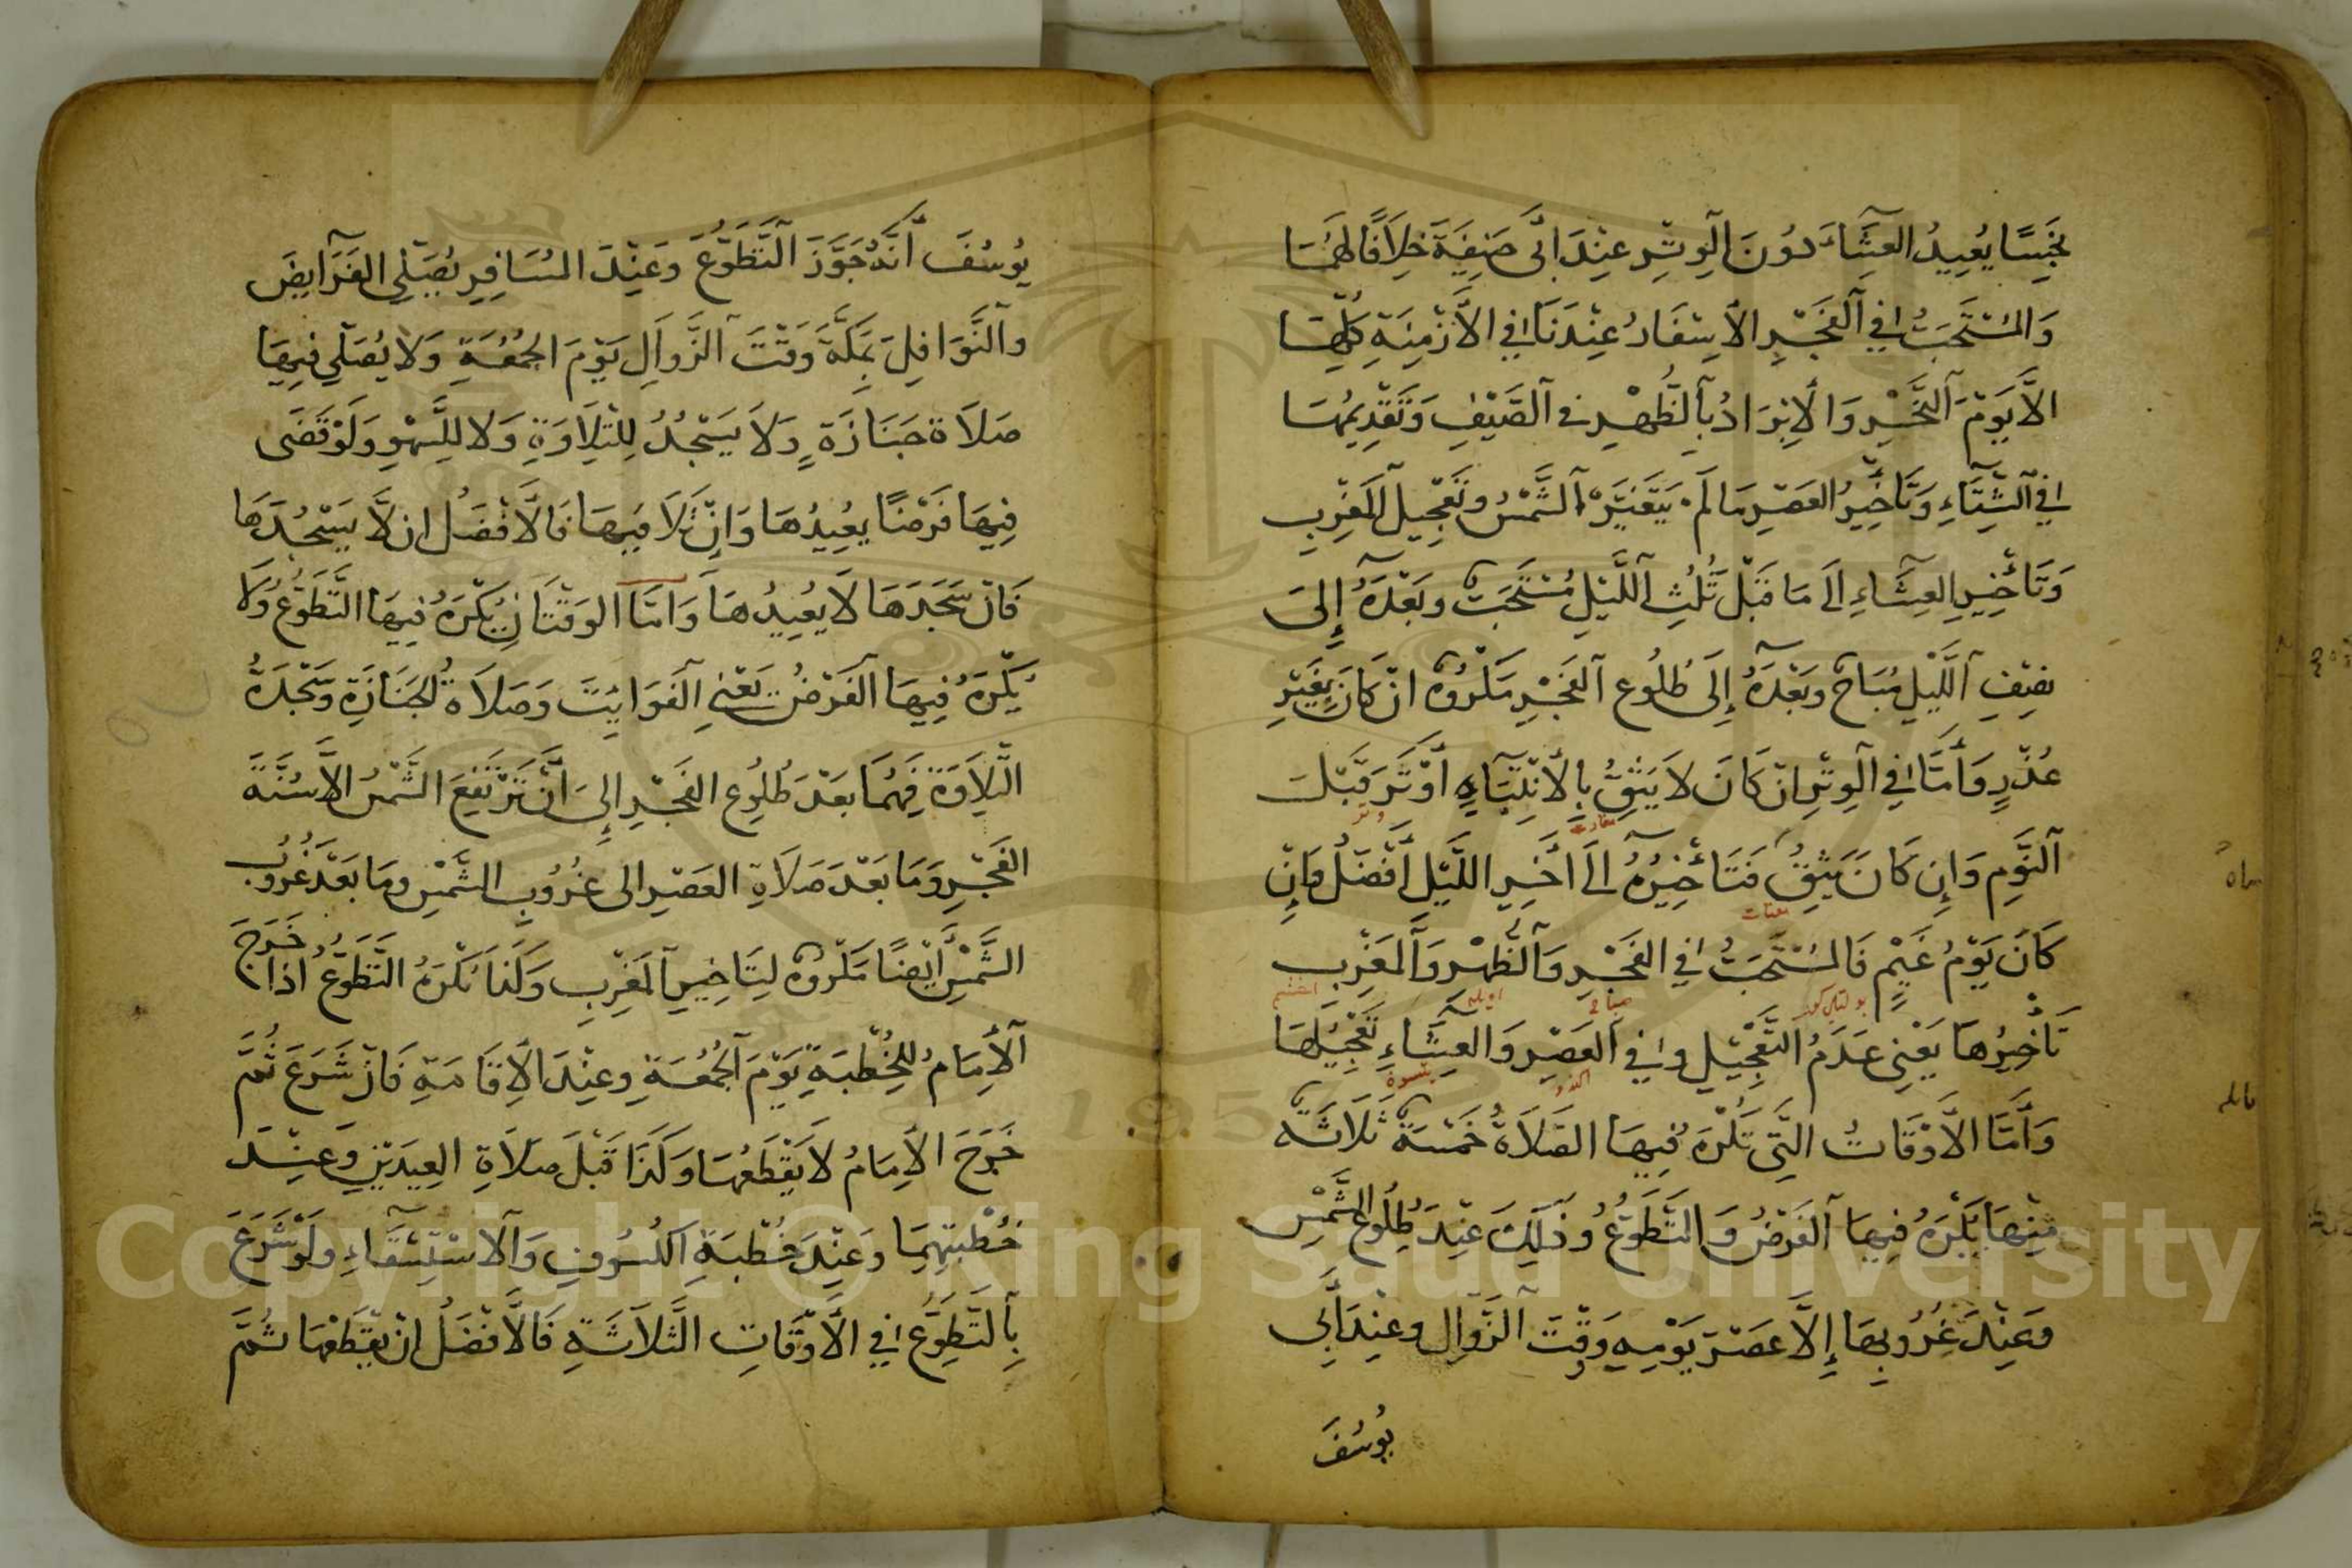 نَجِسًا يُعِيدُ العِشَاءَ دُونَ الوِتْرِ عِنْدَ ابى حَنِيفَةَ خِلَافًا لَهُمَا
وَالمُسْتَحَبُّ فِي الفَجْرِ الأسْفَارُ عِنْدَنَا فِي الأَزْمِنَةِ كُلِّهَا
الاَّ يَوْمَ النَّحْرِ وَالأِبْرَادُ بِالظُّهْرِ فى الصَّيْفِ وَتَقْدِيمُهَا
فِي الشِّتَاءِ وَتَأخِيرُ العَصْرِ مَا لَمْ يَتَغَيَّرْ الشَّمْسُ وتَعْجِيل المَغْرِبِ
وَتَأخِيرِ العِشَاءِ اِلَى مَا قَبْلَ ثُلُثِ اللَّيْلِ مُسْتَحَبٌّ وبَعْدَهُ إِلىَ
نِصْفِ اللَّيْلِ مُبَاحٌ وبَعْدَهُ إِلَى طُلُوعِ الفَجْرِ مَكْرُوهٌ انْ كَانَ بِغَيْرِ
عُذْرٍ وَأَمَّا فِي الوِتْرِ انْ كَانَ لاَ يَثِقُ بِالأنْتِبَاهِ أَوْتَرَ قَبْلَ
النَّوْمِ وَإِن كَانَ يَثِقُ فَتَأخِيرُهُ الَى اخِرِ اللَّيْلِ أَفْضَلُ وَإِنْ
كَانَ يَوْمُ غَيْمٍ فَالمُسْتَحَبُّ فِي الفَجْرِ وَالظُّهْرِ وَالمَغْرِبِ
تَأْخِيرُهَا يَعْنِى عَدَمُ التَّعْجِيلِ وفِي العَصْرِ وَالعِشَاءِ تَعْجِيلُهَا
وَأَمَّا الأَوْقَاتُ التَّى تُكْرَهُ فِيهَا الصَّلَاةُ خَمْسَةٌ ثَلاَثَةٌ
مِنْهَا يُكْرَهُ فِيهَا الفَرْضُ وَالتَّطَوُّعُ وذَلِكَ عِنْدَ طُلُوعِ الشَّمْسِ
وَعِنْدَ غُرُوبِهَا إِلاَّ عَصْرَ يَوْمِهِ وَقْتَ الزَّوَالِ وعِنْدَ أَبِى
يُوسُفَ
يُوسُفَ أَنَّهُ جَوَّزَ التَّطَوُّعَ وَعِنْدَ المُسَافِرِ يُصَلِى الفَرَايِضَ
والنَّوَافِلَ بِمَكَّةَ وَقْتَ الزَّوَالِ يَوْمَ الجُمُعَةِ وَلاَ يُصَلِّى فِيهَا
صَلاَةَ جَنَازَةٍ وَلاَ يَسْجُدُ لِلتِّلَاوَةِ وَلا للِسَّهْوِ وَلَوْ قَضَى
فِيهَا فَرْضًا يعُيِدُهَا وَاِنْ تَلاَ فيِهَا فَالأَفْضَلُ ان لاَّ يَسْجُدَهَا
فَانْ سَجَدَهَا لَا يعُيِدُهَا وَامَّا الوَقْتَانِ يُكْرَهُ فيِهَا التَّطَوُّعُ وَلَا
يُكْرَهُ فِيهَا الفَرْضُ يَعْنِى الفَوَايِتَ وَصَلاَةُ الجَنَازَةِ وَسَجْدَةُ
التِّلَاوَةِ فَهُمَا بَعْدَ طُلُوعِ الفَجْرِ إِلىَ أَنْ تَرْتَفِعَ الشَّمْسُ الاَّ سُنَّةَ
الفَجْرِ وَمَا بَعْدَ صَلَاةِ العَصْرِ الى غُرُوبِ الشَّمْسِ ومَا بَعْدَ غُرُوبِ
الشَّمْسِ أَيْضًا مَكْرُوهٌ لِتَاخِيرِ المَغْرِبِ وَكَذَا يُكْرَهُ التَّطَوُّعُ اذَا خَرَجَ
الأِمَامُ لِلخُطْبَةِ يَوْمَ الجُمُعَةِ وعِنْدَ الأِقَامَةِ فَانْ شَرَعَ ثُمَّ
خَرَجَ الأِمَامُ لاَ يَقْطَعُهَا وَكَذَا قَبْلَ صَلَاةِ العِيدَيْنِ وَعِنْدَ
خُطْبَتِهِمَا وَعِنْدَ خُطْبَةِ الكُسُوفِ وَالاسْتِسْقَاءِ ولَوْ شَرَعَ
بِالتَّطَوُّعِ فِي الأَوْقَاتِ الثَّلاَثَةِ فَالأَفْضَلُ انْ يَقْطَعْهَا ثُمَّ
Copyright © King Saud University